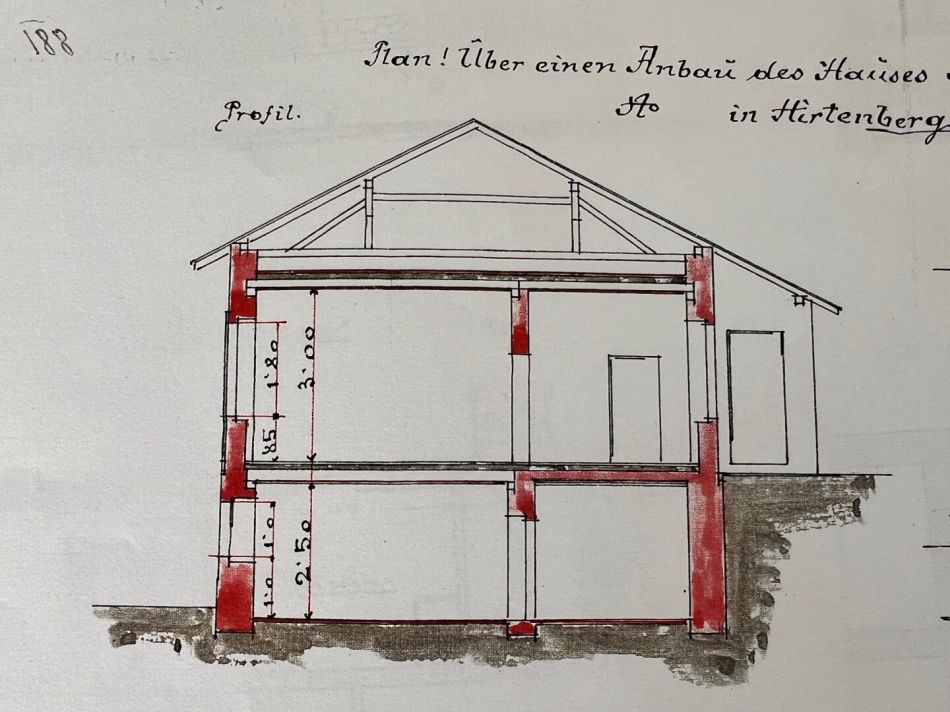 188
Plan! Über einen Anbau des Hauses
Profil.
No
in Hirtenberg
1'80
3'00
85
1'0
2'50
1'0